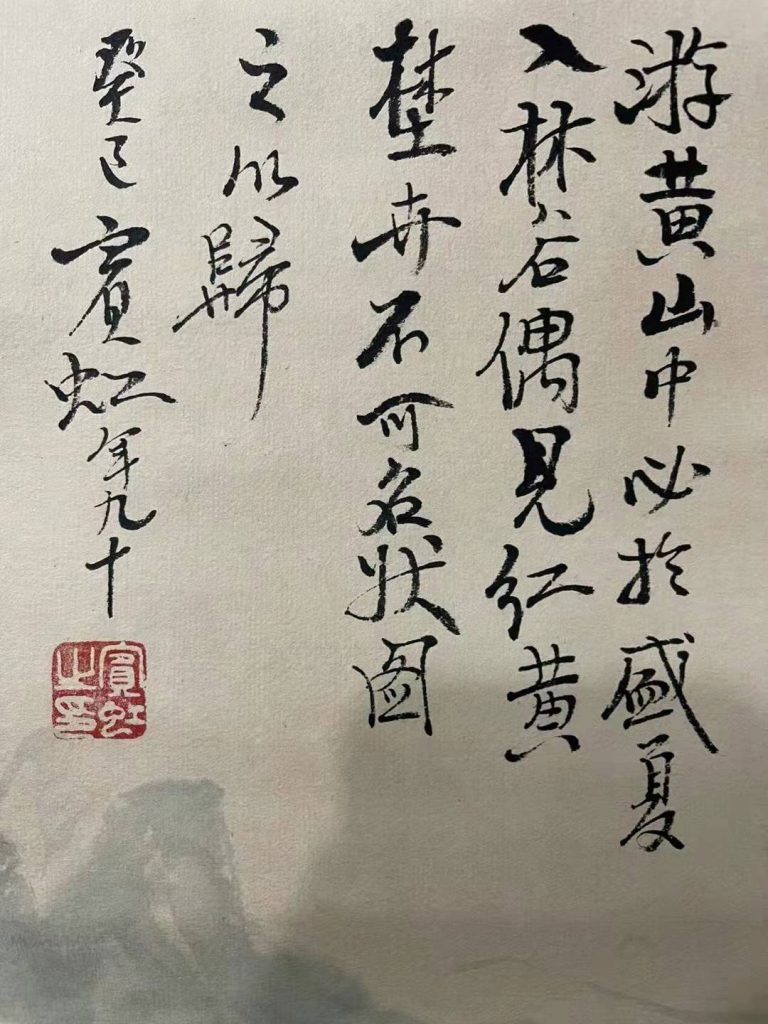 游黄山中必於盛夏
入林谷偶見红黄
埜卉不可名状图
之以歸
癸巳賓虹年九十
賓虹之印